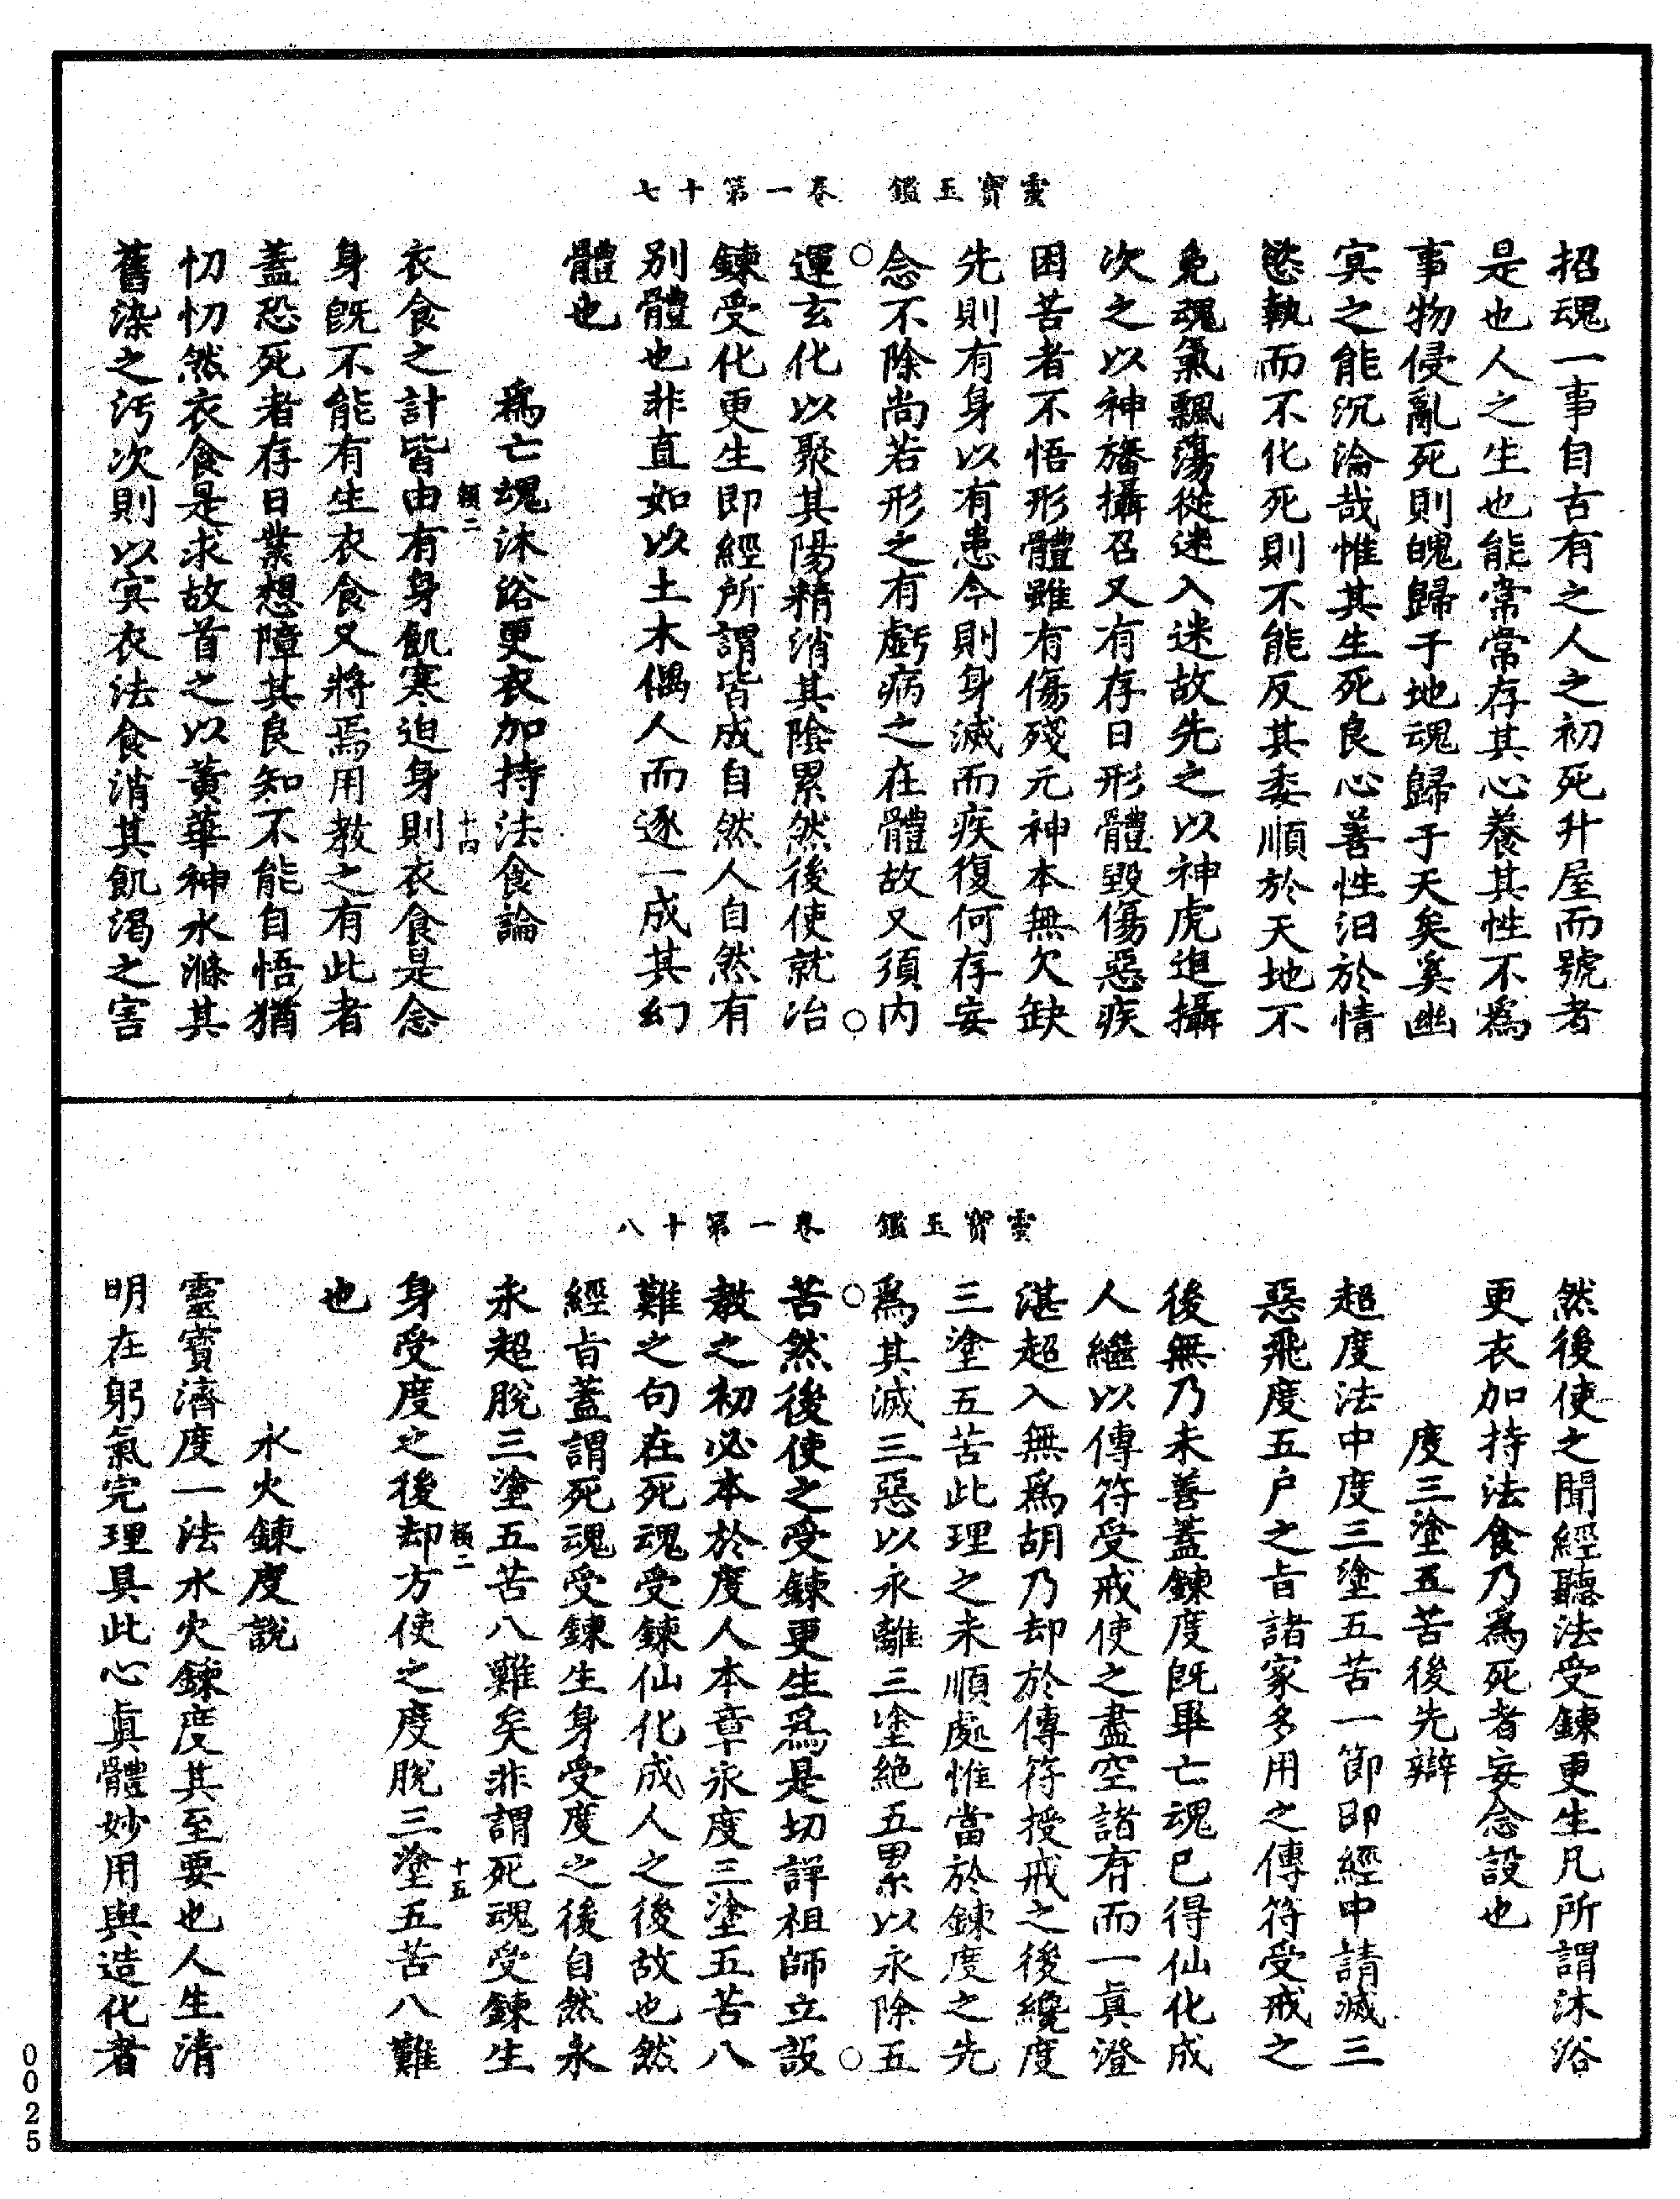 靈寶玉鑑　卷一第十七
招魂一事自古有之人之初死升屋而號者
是也人之生也能常常存其心養其性不爲
事物侵亂死則魄歸于地魂歸于天矣奚幽
冥之能沉淪哉惟其生死良心善性汩於情
慾執而不化死則不能反其委順於天地不
免魂氣飄蕩從迷入迷故先之以神虎追攝
次之以神旛攝召又有存日形體毀傷惡疾
困苦者不悟形體雖有傷殘元神本無欠缺
先則有身以有患今則身滅而疾復何存妄
念不除尚若形之有虧病之在體故又須內
運玄化以聚其陽精消其陰累然後使就冶
鍊受化更生即經所謂皆成自然人自然有
別體也非直如以土木偶人而逐一成其幻
體也
爲亡魂沐浴更衣加持法食論
頯二　十四
衣食之計皆由有身飢寒迫身則衣食是念
身旣不能有生衣食又將焉用教之有此者
蓋恐死者存日業想障其良知不能自悟猶
忉忉然衣食是求故首之以黃華神水滌其
舊染之污次則以冥衣法食消其飢渴之害
靈寶玉鑑　卷一第十八
然後使之聞經聽法受鍊更生凡所謂沐浴
更衣加持法食乃爲死者妄念設也
度三塗五苦後先辯
超度法中度三塗五苦一節即經中請滅三
惡飛度五戶之旨諸家多用之傳符受戒之
後無乃未善蓋鍊度旣畢亡魂已得仙化成
人繼以傳符受戒使之盡空諸有而一眞澄
湛超入無爲胡乃却於傳符授戒之後纔度
三塗五苦此理之未順處惟當於鍊度之先
爲其滅三惡以永離三塗絕五累以永除五
苦然後使之受鍊更生爲是切詳祖師立設
教之初必本於度人本章永度三塗五苦八
難之句在死魂受鍊仙化成人之後故也然
經旨蓋謂死魂受鍊生身受度之後自然永
永超脫三塗五苦八難矣非謂死魂受鍊生
頯二　十五
身受度之後却方使之度脫三塗五苦八難
也
水火鍊度說
靈寶濟度一法水火鍊度其至要也人生清
明在躬氣完理具此心眞體妙用與造化者
0025